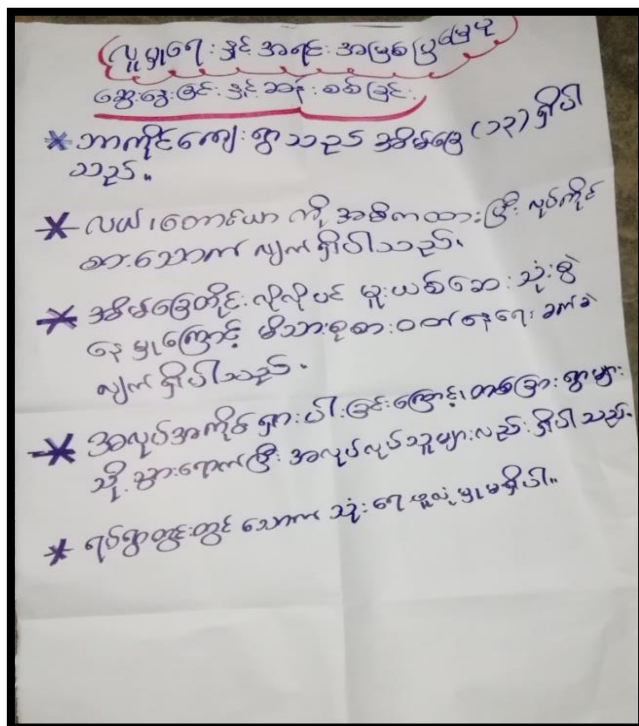 လူမှုရေး နှင့် အရင်း အမြစ်ပြမြေပုံ
ဆွေးနွေးခြင်း နှင့် ဆန်းစစ်ခြင်း
* ဘာကိုင်ကျေးရွာသည် အိမ်ခြေ (၁၃) ရှိပါ
သည်။
* လယ်၊ တောင်ယာ ကို အဓိကထားပြီး လုပ်ကိုင်
စားသောက် လျက်ရှိပါသည်။
* အိမ်ခြေတိုင်းလိုလိုပင် မူးယစ်ဆေးသုံးစွဲ
နေမှုကြောင့် မိသားစုစားဝတ်နေရေး ခက်ခဲ
လျက်ရှိပါသည်။
* အလုပ်အကိုင်ရှားပါးခြင်းကြောင့် တစ်ခြားရွာများ
သို့ သွားရောက်ပြီး အလုပ်လုပ်သူများလည်း ရှိပါသည်။
* ရပ်ရွာတွင်းတွင် သောက်သုံးရေ ဖူလုံမှုမရှိပါ။